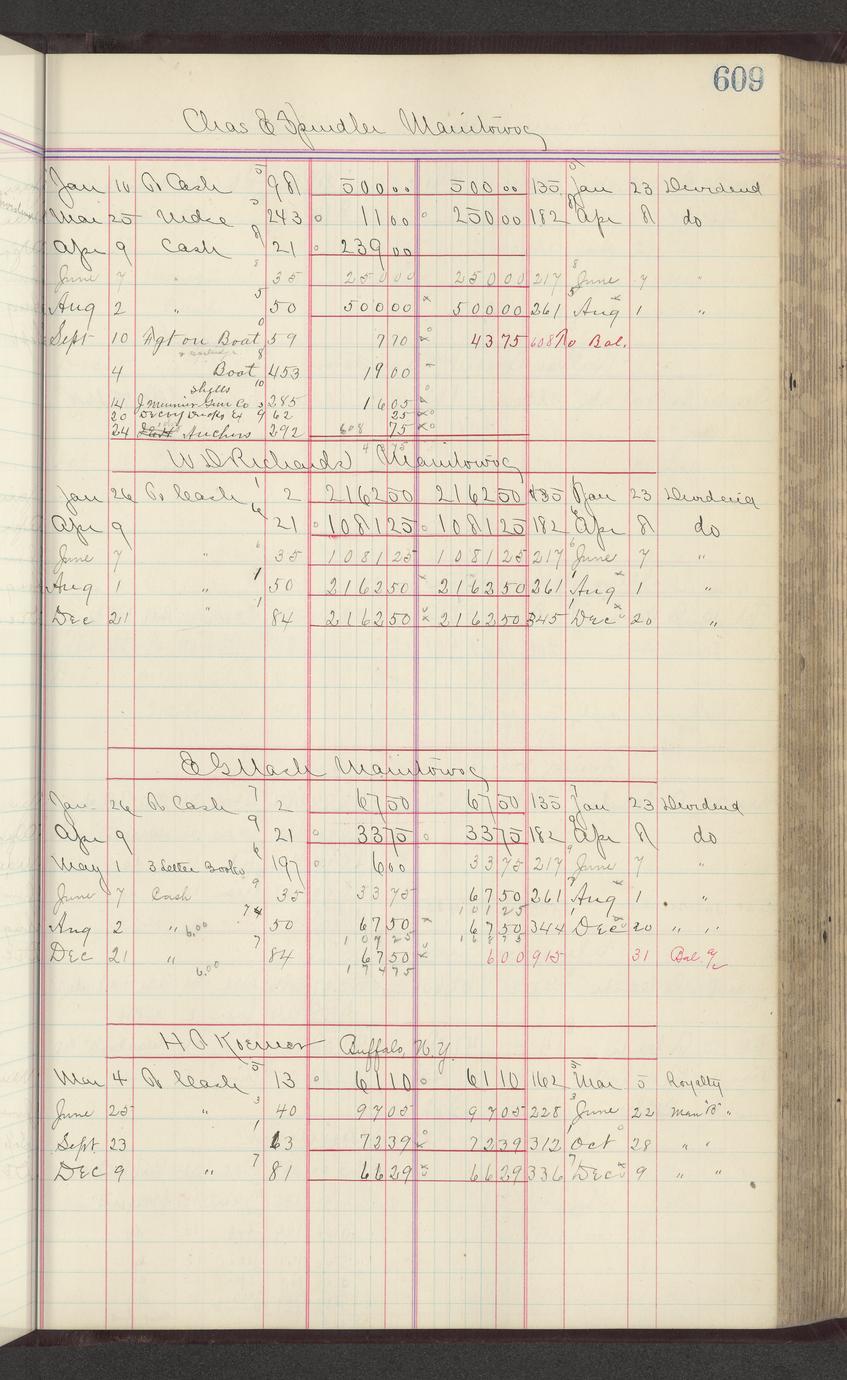 609
Chas E Spindler Manitowoc
Jan 10 To Cash 5 98 500 00 500 00 135 5 Jan 23 Dividend
Mar 25 Mdse 5 243 11 00 250 00 182 8 Apr 8 do
Apr 9 Cash 8 21 239 00
June 7 " 8 35 250 00 250 00 217 8 June 7 "
Aug 2 " 5 50 500 00 500 00 261 5 Aug 1 "
Sept 10 Fgt on Boat 0 59 7 70 43 75 608 To Bal.
4 Boat 8 453 19 00
Shells 10
14 Gun Co 3 285 16 05
20 Decoy Ducks Ex 9 62 25
24 Anchors 292 608 75
43 75
W D Richards Manitowoc
Jan 26 To Cash 1 2 2162 50 2162 50 135 Jan 23 Dividend
Apr 9 6 21 1081 25 1081 25 182 6 Apr 8 do
June 7 " 6 35 1081 25 1081 25 217 6 June 7 "
Aug 1 " 1 50 2162 50 2162 50 261 1 Aug 1 "
Dec 21 " 1 84 2162 50 2162 50 345 1 Dec 20 "
E G Nash Manitowoc
Jan 26 To Cash 7 2 67 50 67 50 135 7 Jan 23 Dividend
Apr 9 9 21 33 75 33 75 182 9 Apr 8 do
May 1 3 Letter Books 6 197 6 00 33 75 217 9 June 7 "
June 7 Cash 9 35 33 75 67 50 261 7 Aug 1 "
101 25
Aug 2 " 6.00 7 4 50 67 50 67 50 344 1 Dec 20 " "
107 25 168 75
Dec 21 " 7 84 67 50 6 00 915 31 Bal. a/c
6.00 174 75
H A Koerner Buffalo, N.Y.
Mar 4 To Cash 5 13 61 10 61 10 162 5 Mar 5 Royalty
June 25 " 3 40 97 05 97 05 228 3 June 22 Man "B" "
Sept 23 1 63 72 39 72 39 312 1 Oct 28 " "
Dec 9 " 7 81 66 29 66 29 336 7 Dec 9 " "